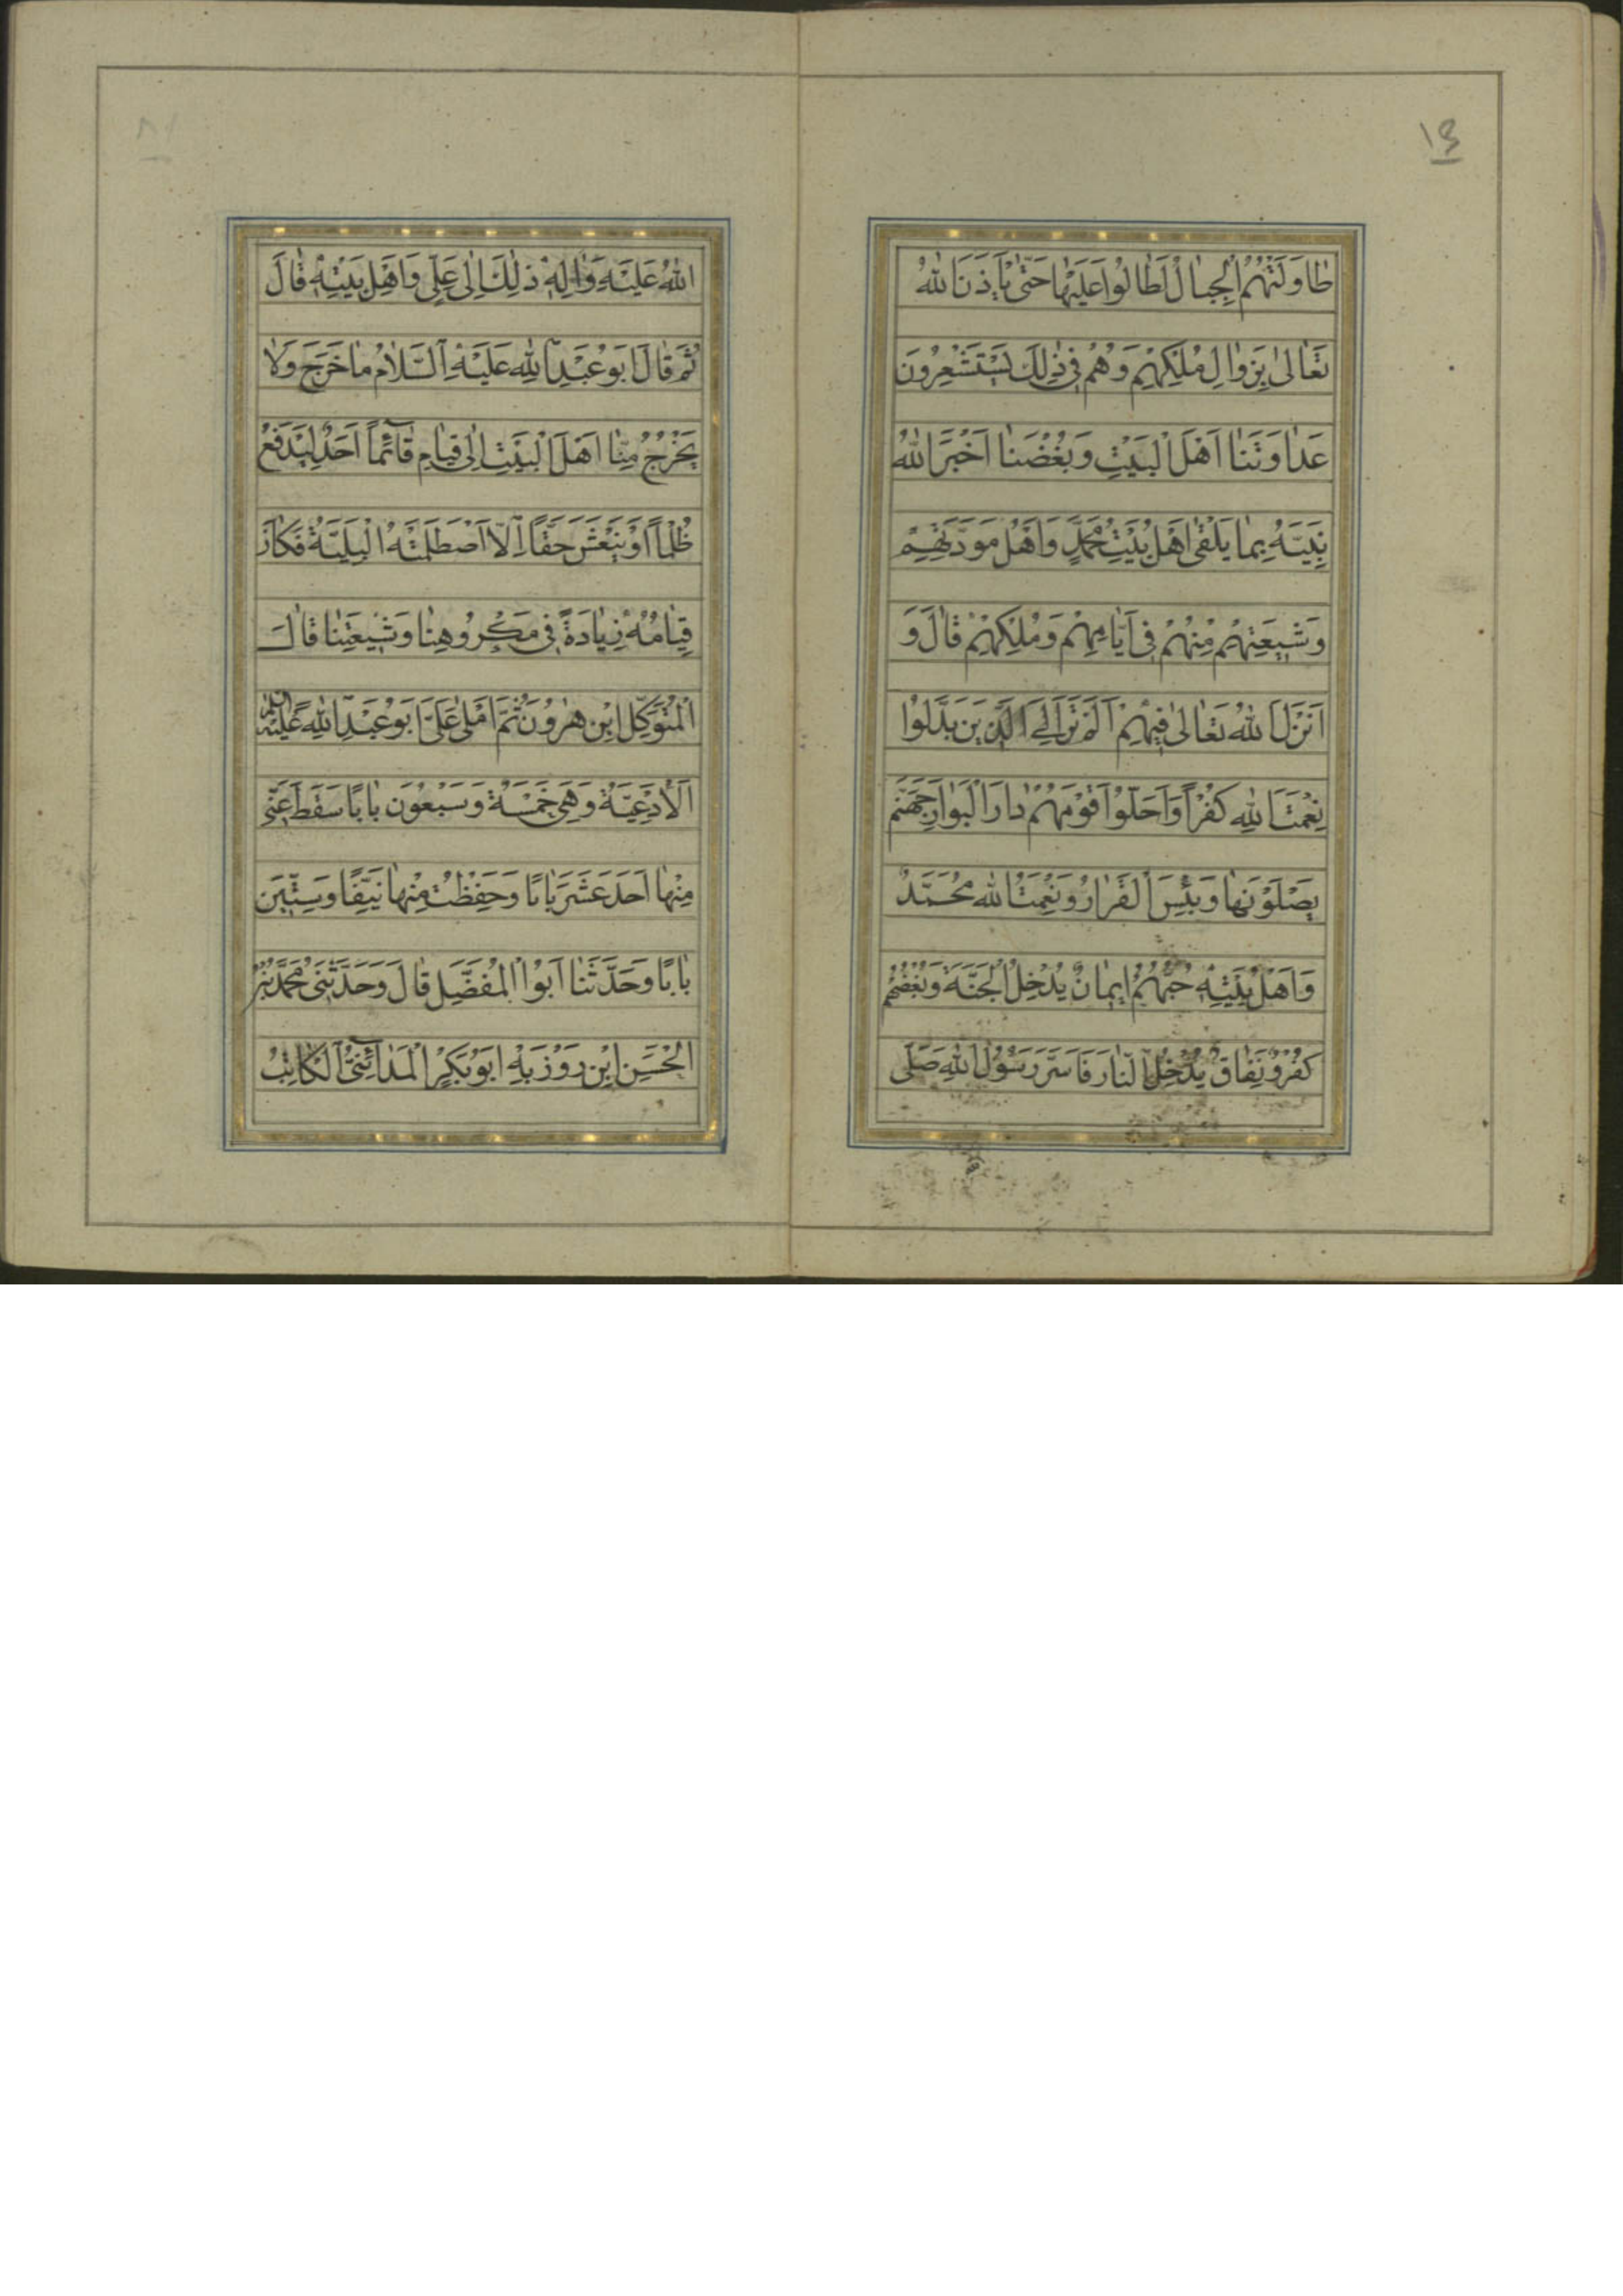 ١٤
طٰاوَلَتْهُمُ الْجِبٰالُ لَطٰالُوا عَلَيْهٰا حَتّٰى يَأْذَنَ اللهُ
تَعٰالىٰ بِزَوٰالِ مُلْكِهِمْ وَهُمْ فِى ذٰلِكَ يَسْتَشْعِرُونَ
عَدٰاوَتَنٰا اَهْلَ الْبَيْتِ وَبُغْضَنٰا اَخْبَرَ اللهُ
نَبِيَّهُ بِمٰا يَلْقىٰ اَهْلُ بَيْتِ مُحَمَّدٍ وَاَهْلُ مَوَدَّتِهِمْ
وَشِيعَتِهِمْ مِنْهُمْ فِى اَيّٰامِهِمْ وَمُلْكِهِمْ قٰالَ وَ
اَنْزَلَ اللهُ تَعٰالىٰ فِيهِمْ اَلَمْ تَرَ اِلَى الَّذِينَ بَدَّلُوا
نِعْمَتَ اللهِ كُفْرًا وَاَحَلُّوا قَوْمَهُمْ دٰارَ الْبَوٰارِ جَهَنَّمَ
يَصْلَوْنَهٰا وَبِئْسَ الْقَرٰارُ وَنِعْمَتُ اللهِ مُحَمَّدٌ
وَاَهْلُ بَيْتِهِ حُبُّهُمْ اِيمٰانٌ يُدْخِلُ الْجَنَّةَ وَبُغْضُهُمْ
كُفْرٌ وَنِفٰاقٌ يُدْخِلُ النّٰارَ فَاَسَرَّ رَسُولُ اللهِ صَلَّى
اللهُ عَلَيْهِ وَاٰلِهِ ذٰلِكَ اِلىٰ عَلِىٍّ وَاَهْلِ بَيْتِهِ قٰالَ
ثُمَّ قٰالَ اَبُو عَبْدِ اللهِ عَلَيْهِ السَّلٰامُ مٰا خَرَجَ وَلٰا
يَخْرُجُ مِنّٰا اَهْلَ الْبَيْتِ اِلىٰ قِيٰامِ قٰآئِمِنٰا اَحَدٌ لِيَدْفَعَ
ظُلْمًا اَوْ يَنْعَشَ حَقًّا اِلّٰا اصْطَلَمَتْهُ الْبَلِيَّةُ فَكٰانَ
قِيٰامُهُ زِيٰادَةً فِى مَكْرُوهِنٰا وَشِيعَتِنٰا قٰالَ
الْمُتَوَكِّلُ ابْنُ هٰرُونَ ثُمَّ اَمْلىٰ عَلَىَّ اَبُو عَبْدِ اللهِ عَلَيْهِ السَّلٰامُ
اَلْاَدْعِيَةَ وَهِىَ خَمْسَةٌ وَسَبْعُونَ بٰابًا سَقَطَ عَنِّى
مِنْهٰا اَحَدَ عَشَرَ بٰابًا وَحَفِظْتُ مِنْهٰا نَيِّفًا وَسِتِّينَ
بٰابًا وَحَدَّثَنٰا اَبُوا الْمُفَضَّلِ قٰالَ وَحَدَّثَنِى مُحَمَّدُ بْنُ
الْحَسَنِ ابْنِ رَوْزَبِهْ اَبُو بَكْرٍ الْمَدٰائِنِىُّ الْكٰاتِبُ